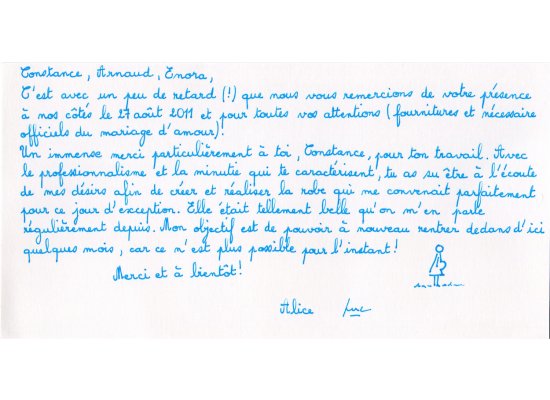 Constance, Arnaud, Enora,
C'est avec un peu de retard (!) que nous vous remercions de votre présence
à nos côtés le 27 août 2011 et pour toutes vos attentions (fournitures et nécessaire
officiels du mariage d'amour)!
Un immense merci particulièrement à toi, Constance, pour ton travail. Avec
le professionnalisme et la minutie qui te caractérisent, tu as su être à l'écoute
de mes désirs afin de créer et réaliser la robe qui me convenait parfaitement
pour ce jour d'exception. Elle était tellement belle qu'on m'en parle
régulièrement depuis. Mon objectif est de pouvoir à nouveau rentrer dedans d'ici
quelques mois, car ce n'est plus possible pour l'instant!
Merci et à bientôt!
Alice